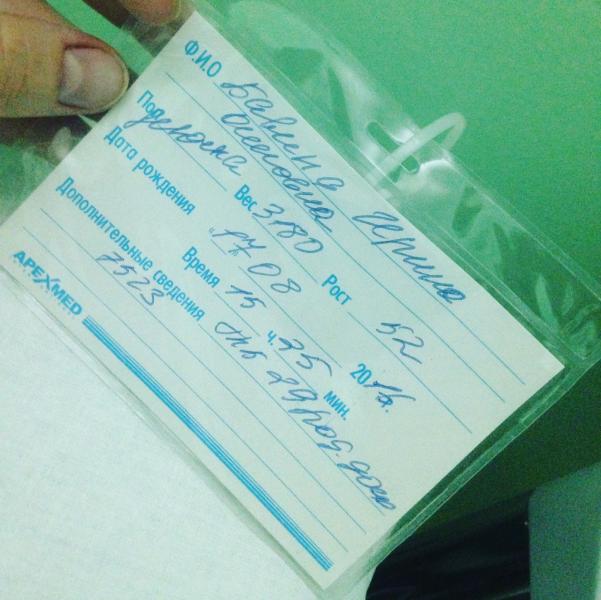 Ф.И.О Ирина
Олеговна
Пол девочка Вес 3180 Рост 52
Дата рождения "17" 08 2016г.
Время 15 ч. 35 мин.
Дополнительные сведения
7523 род. дом
APEXMED